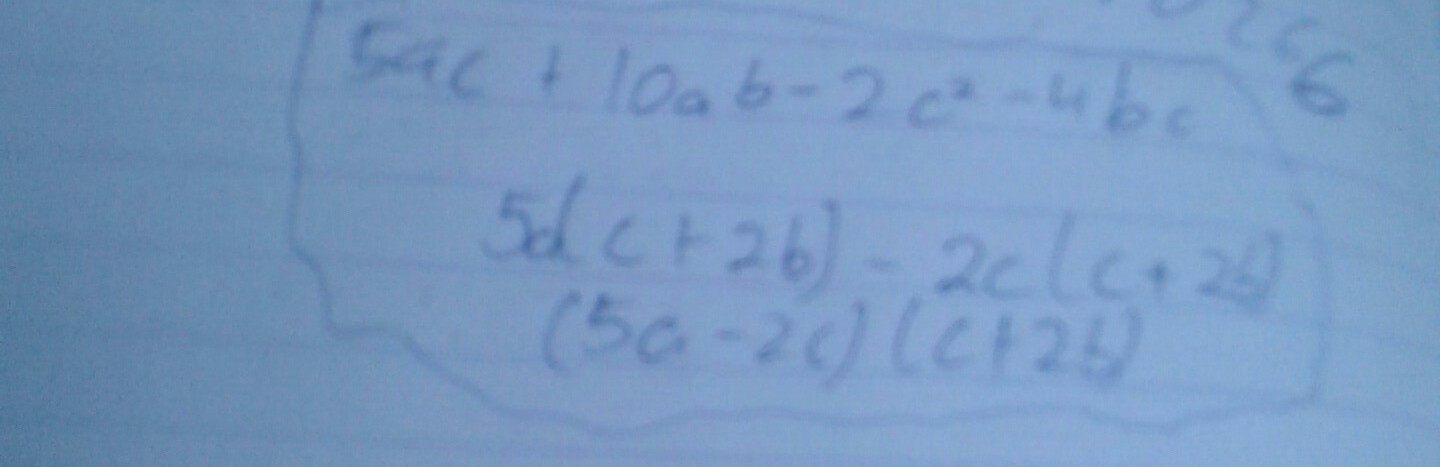 5ac + 10ab - 2c² - 4bc
5a(c + 2b) - 2c(c + 2b)
(5a - 2c)(c + 2b)